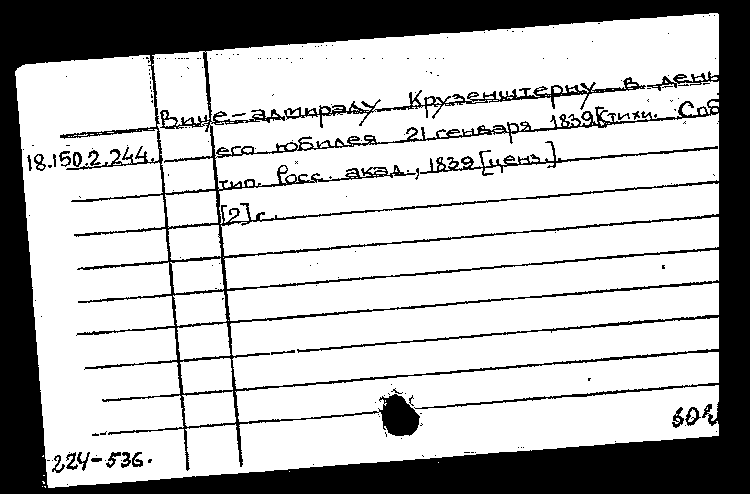 Вице-адмиралу Крузенштерну в день
18.150.2.244. его юбилея 21 генваря 1839 [Стихи. Спб
тип. Росс. акад., 1839 [ценз.].
[2] с.
224-536.